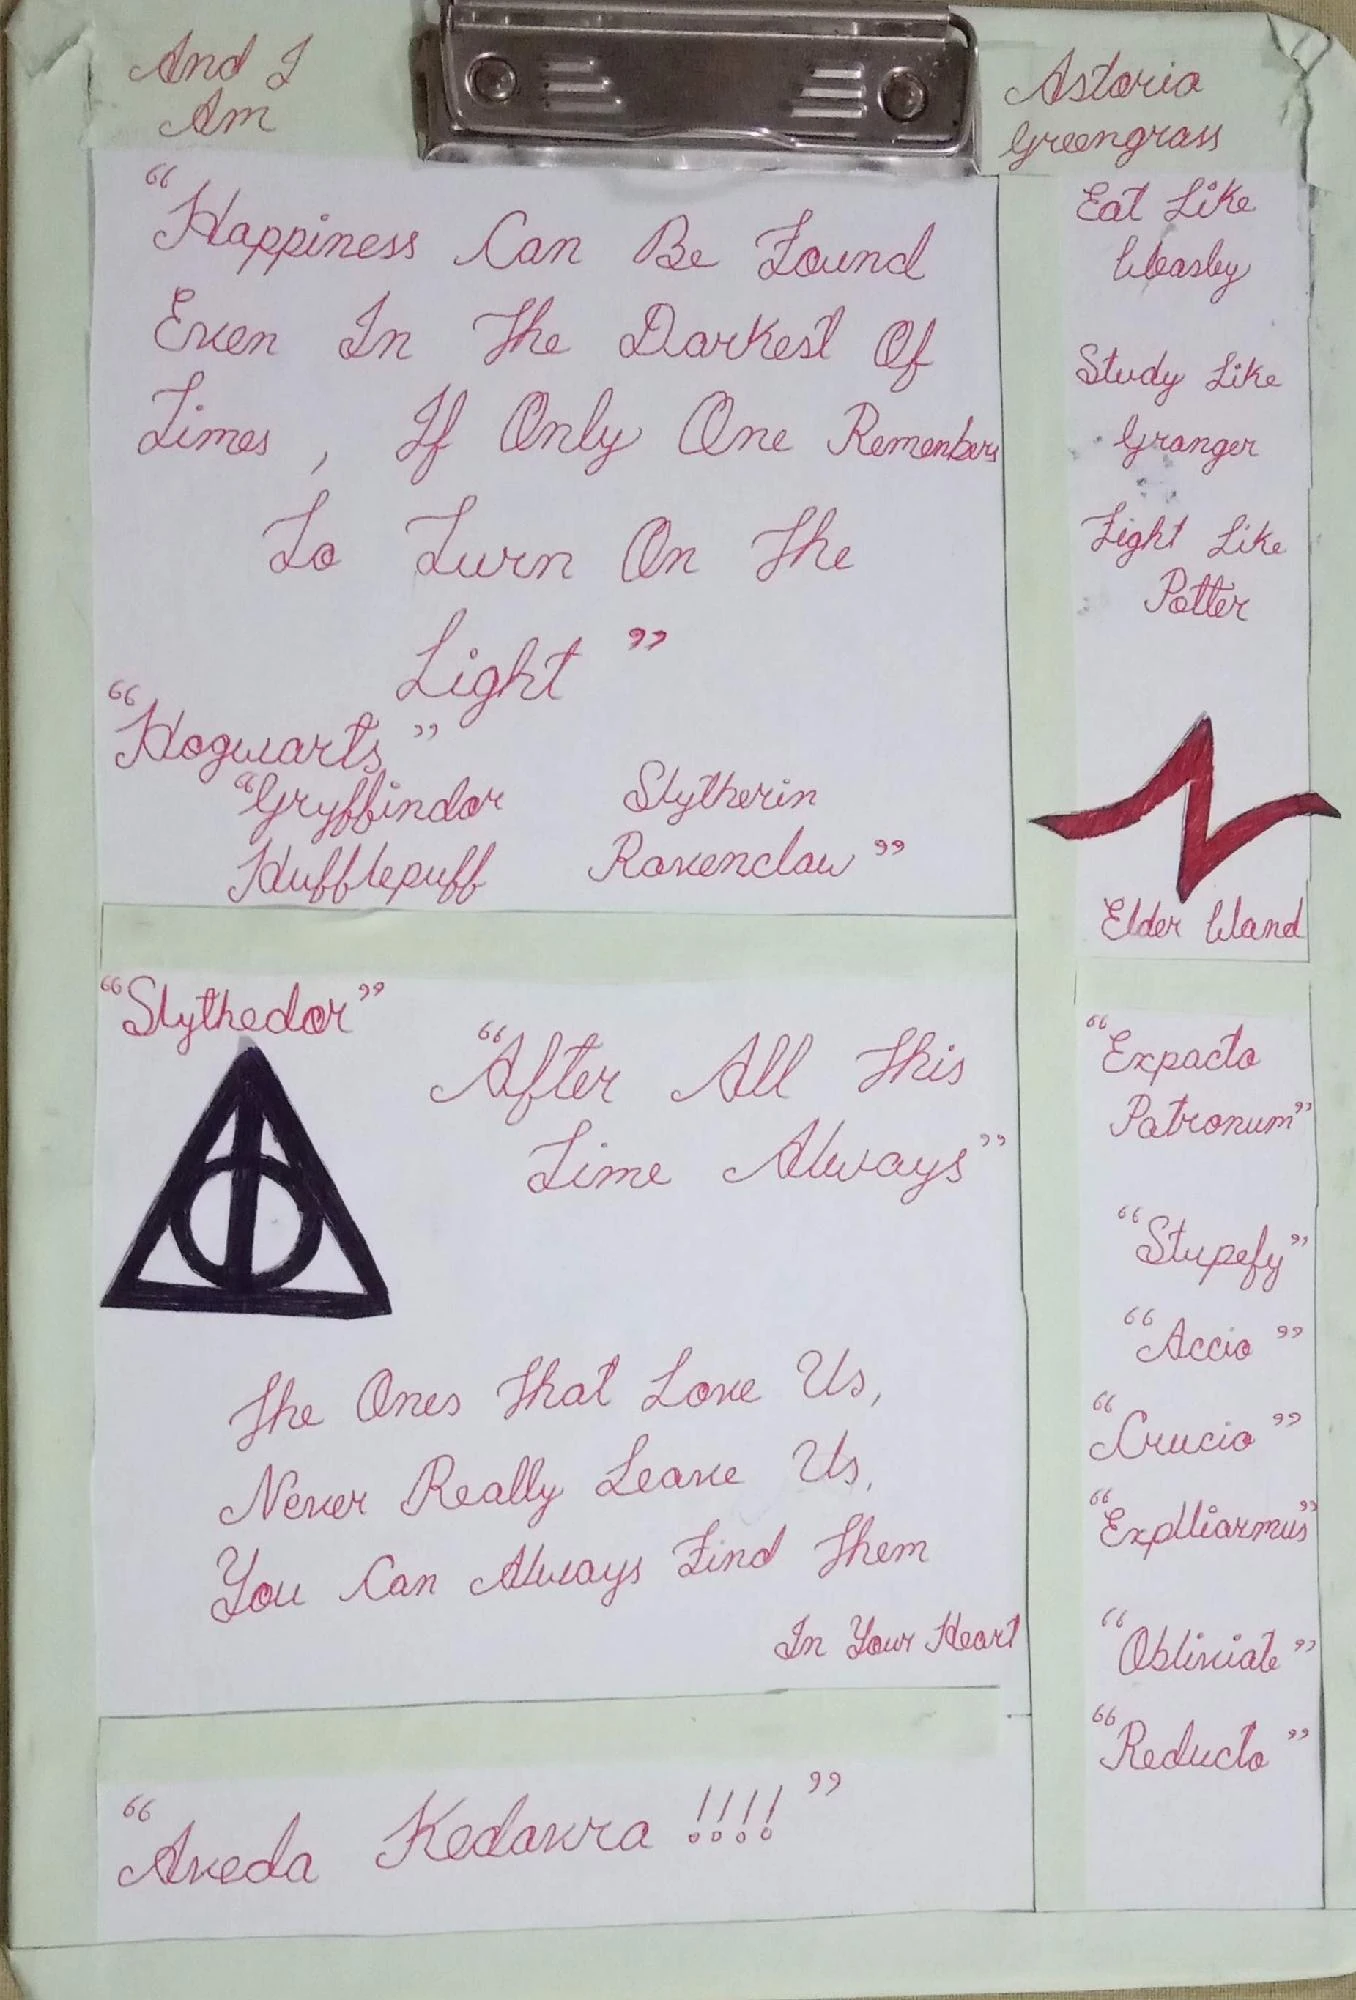 And I
Am
Astoria
Greengrass
"Happiness Can Be Found
Even In The Darkest Of
Times, If Only One Remembers
To Turn On The
Light"
"Hogwarts"
"Gryffindor Slytherin
Hufflepuff Ravenclaw"
"Slythedor"
"After All This
Time Always"
The Ones That Love Us,
Never Really Leave Us,
You Can Always Find Them
In Your Heart
"Aveda Kedavra !!!!"
Eat Like
Weasley
Study Like
Granger
Fight Like
Potter
Elder Wand
"Expacto
Patronum"
"Stupefy"
"Accio"
"Crucio"
"Explliarmus"
"Obliviate"
"Reducto"